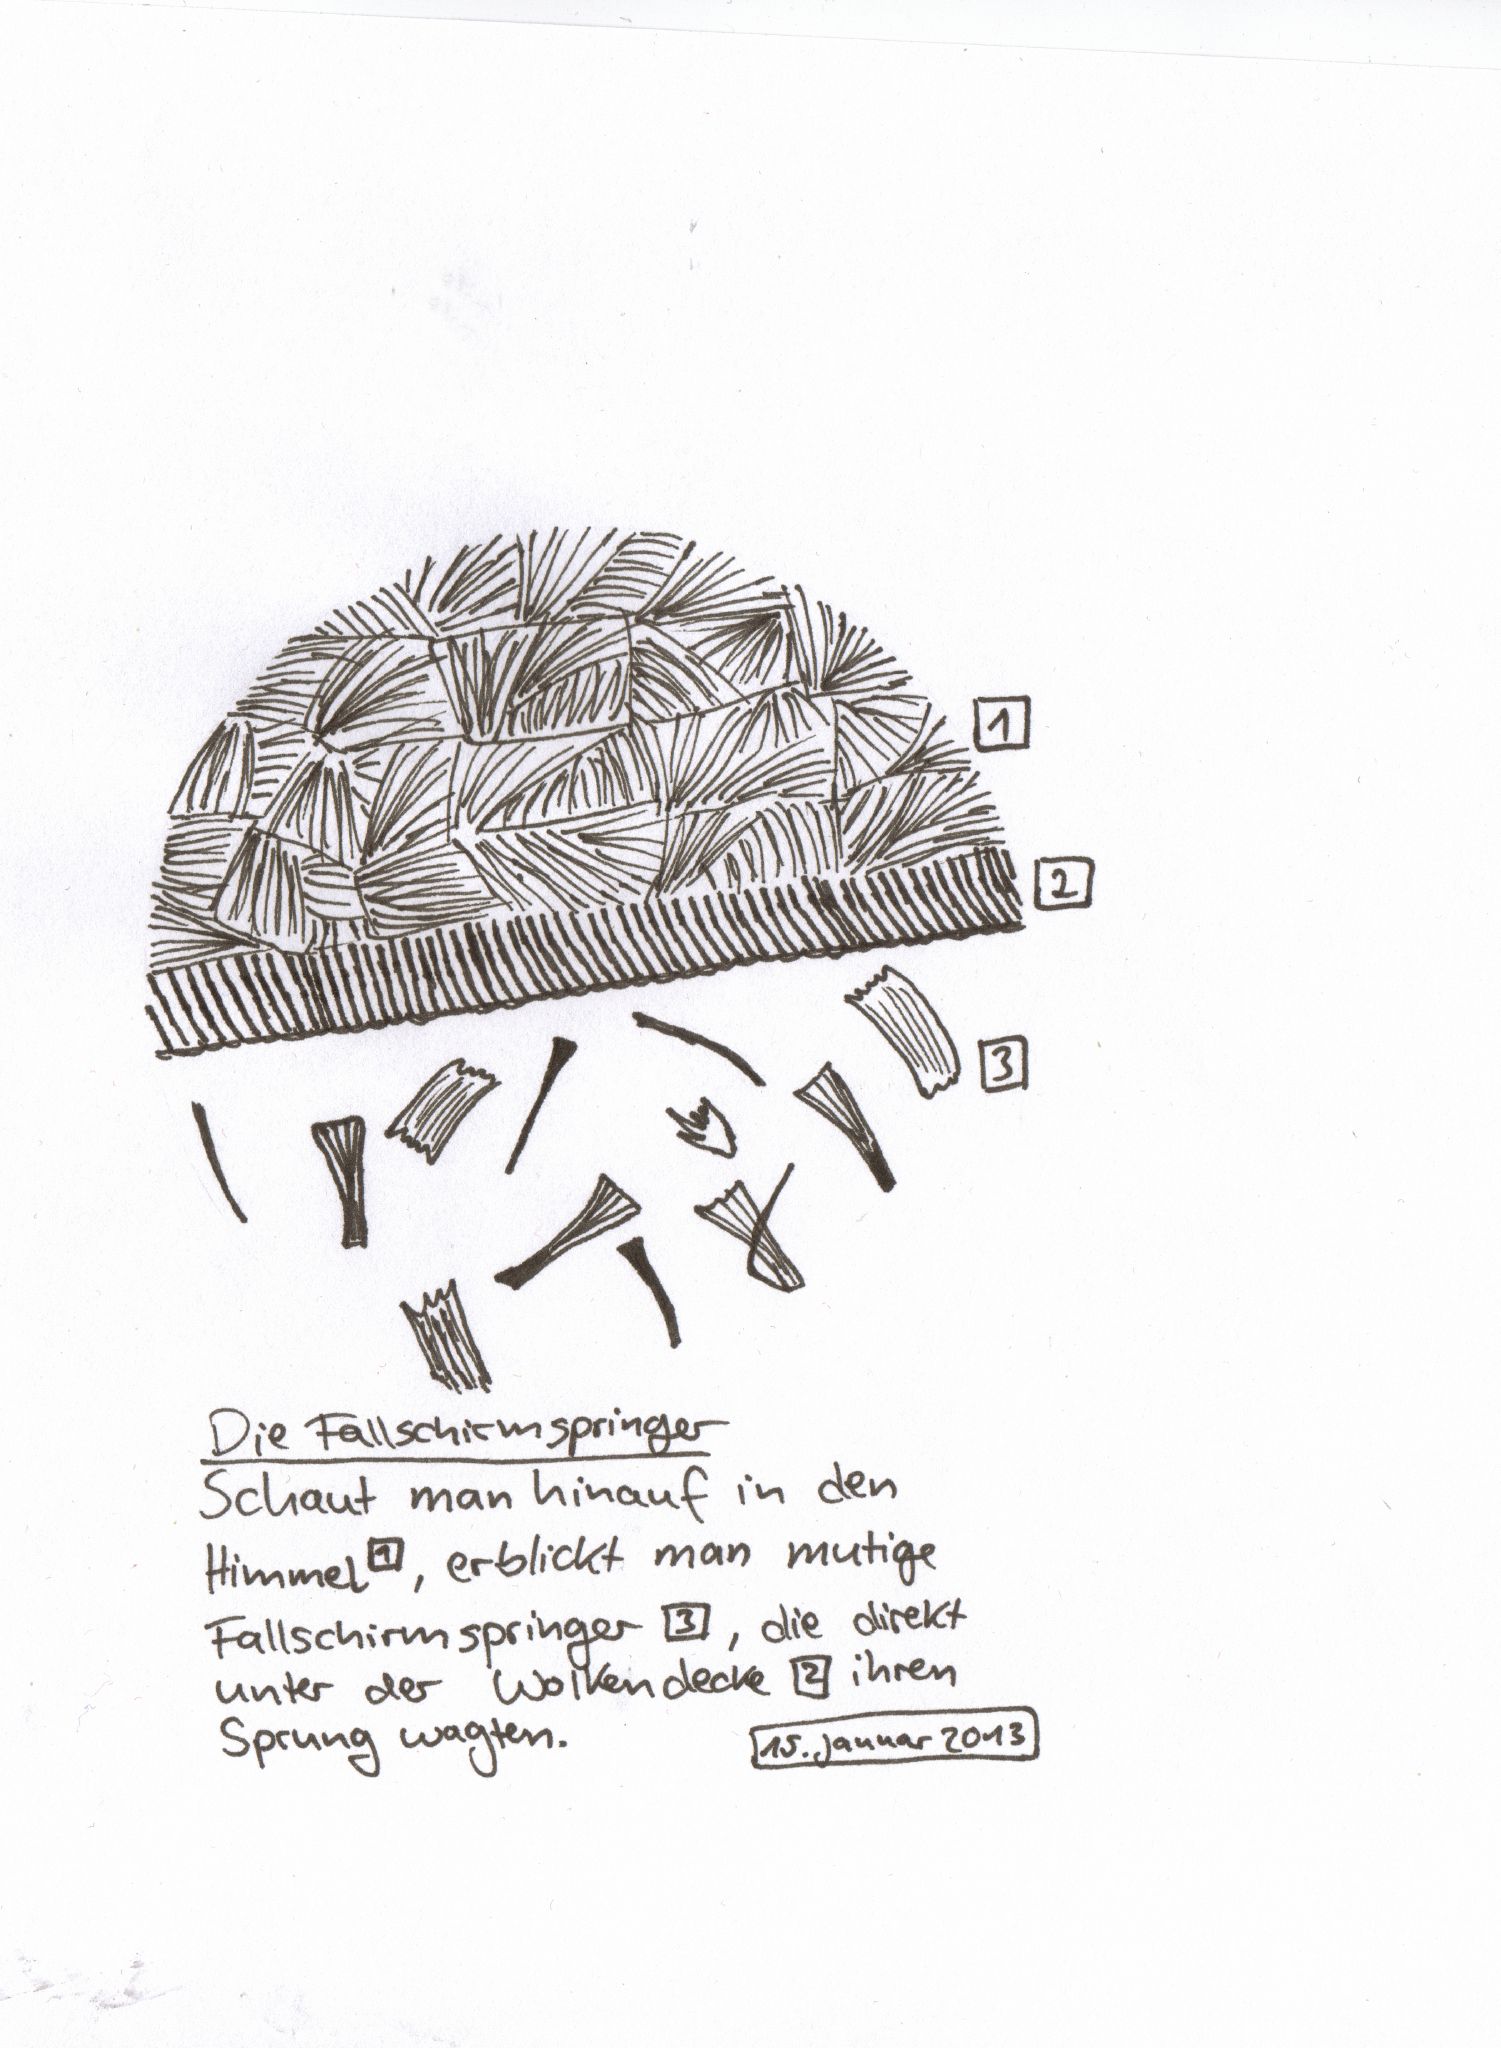 1
2
3
Die Fallschirmspringer
Schaut man hinauf in den
Himmel 1, erblickt man mutige
Fallschirmspringer 3, die direkt
unter der Wolkendecke 2 ihren
Sprung wagten.
15. Januar 2013